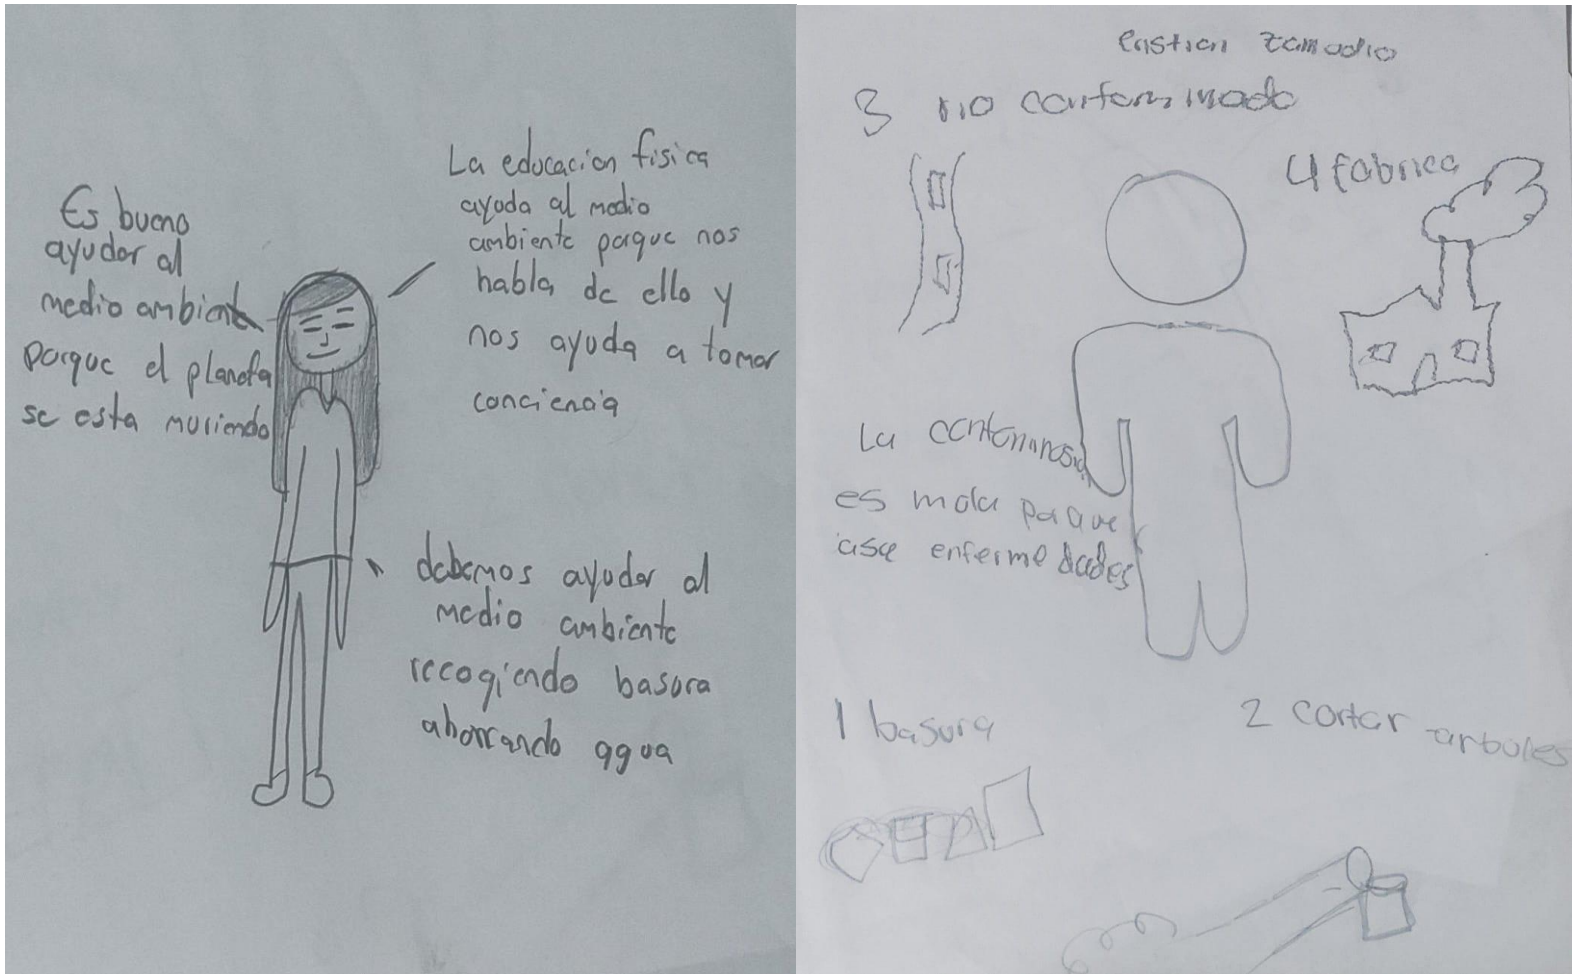 Es bueno
ayudar al
medio ambiente
porque el planeta
se esta muriendo
La educacion fisica
ayuda al medio
ambiente porque nos
habla de ello y
nos ayuda a tomar
conciencia
debemos ayudar al
medio ambiente
recogiendo basura
ahorrando agua
Cristian Zamudio
3 no contaminado
4 fabrica
La contaminasion
es mala porque
ase enfermedades
1 basura
2 cortar arboles